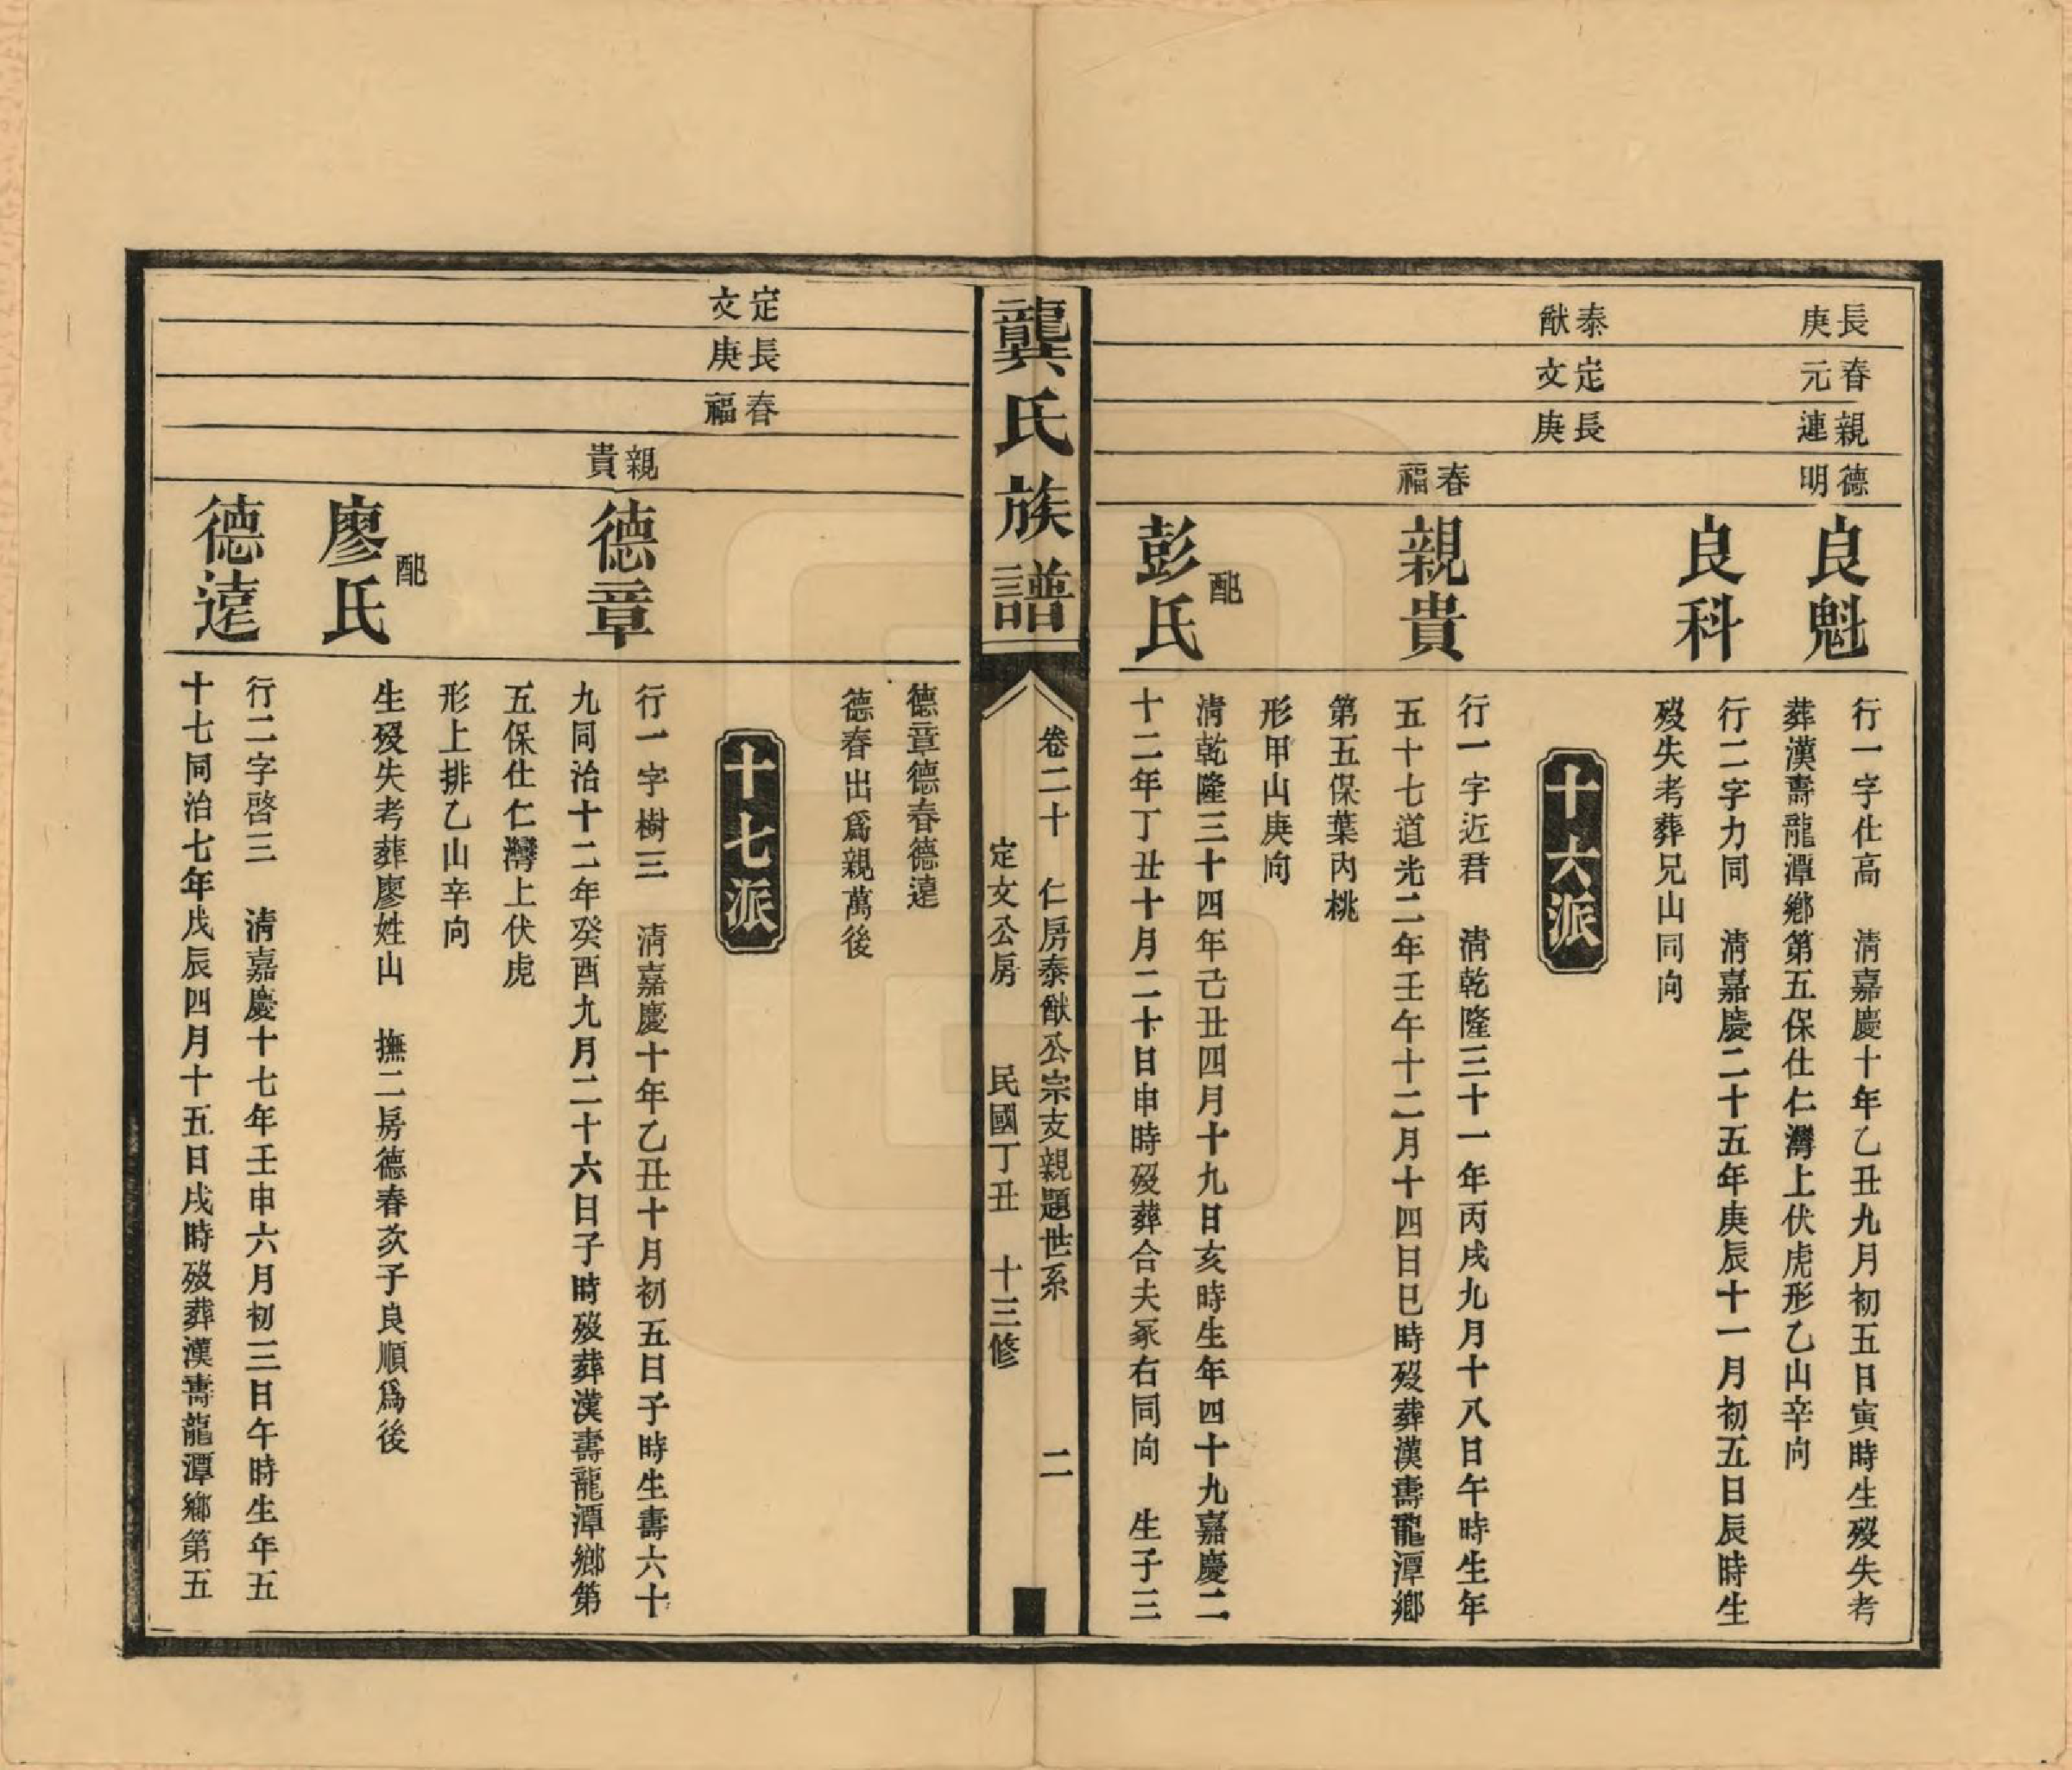 長庚
春元
親連
德明
良魁
行一字仕高　清嘉慶十年乙丑九月初五日寅時生歿失考
葬漢壽龍潭鄉第五保仕仁灣上伏虎形乙山辛向
良科
行二字力同　清嘉慶二十五年庚辰十一月初五日辰時生
歿失考葬兄山同向
十六派
泰猷
定文
長庚
春福
親貴
行一字近君　清乾隆三十一年丙戌九月十八日午時生年
五十七道光二年壬午十二月十四日巳時歿葬漢壽龍潭鄉
第五保葉內桃
形甲山庚向
配
彭氏
清乾隆三十四年己丑四月十九日亥時生年四十九嘉慶二
十二年丁丑十月二十日申時歿葬合夫冢右同向　生子三
龔氏族譜
卷二十　仁房泰猷公宗支親題世系　二
定文公房　民國丁丑　十三修
德章德春德達
德春出爲親萬後
十七派
定文
長庚
春福
親貴
德章
行一字樹三　清嘉慶十年乙丑十月初五日子時生壽六十
九同治十二年癸酉九月二十六日子時歿葬漢壽龍潭鄉第
五保仕仁灣上伏虎
形上排乙山辛向
配
廖氏
生歿失考葬廖姓山　撫二房德春次子良順爲後
德達
行二字啓三　清嘉慶十七年壬申六月初三日午時生年五
十七同治七年戊辰四月十五日戌時歿葬漢壽龍潭鄉第五